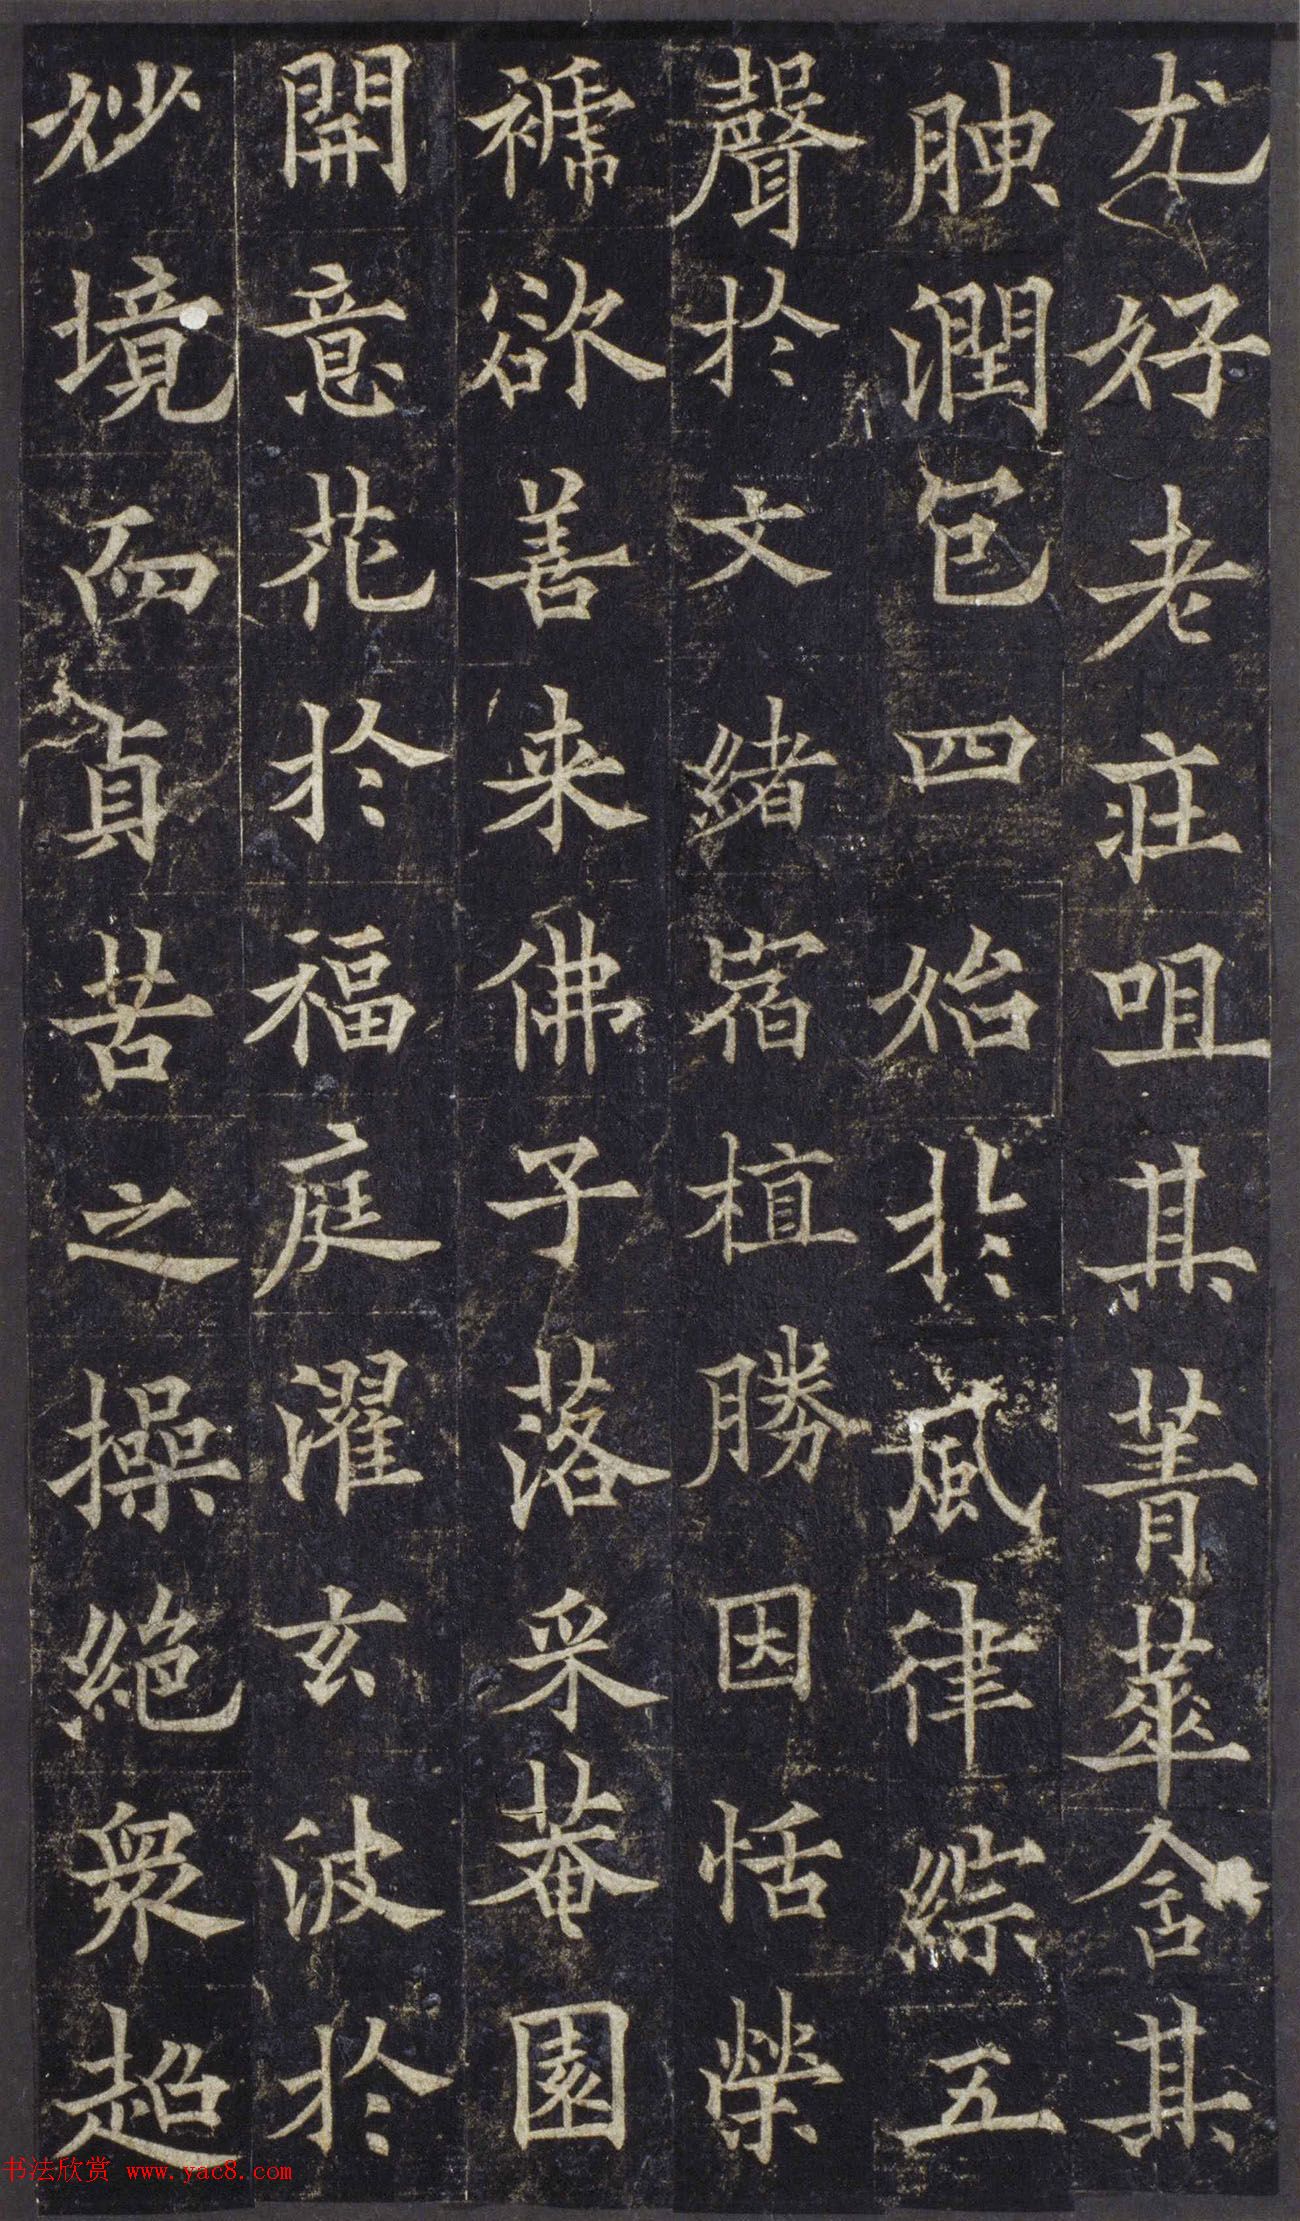 尤好老莊咀其菁華含其
腴潤包四始於風律綜五
聲於文緒宿植勝因恬榮
褫欲善来佛子落采菴園
開意花於福庭濯玄波於
妙境而貞苦之操絶衆超
书法欣赏 www.yac8.com